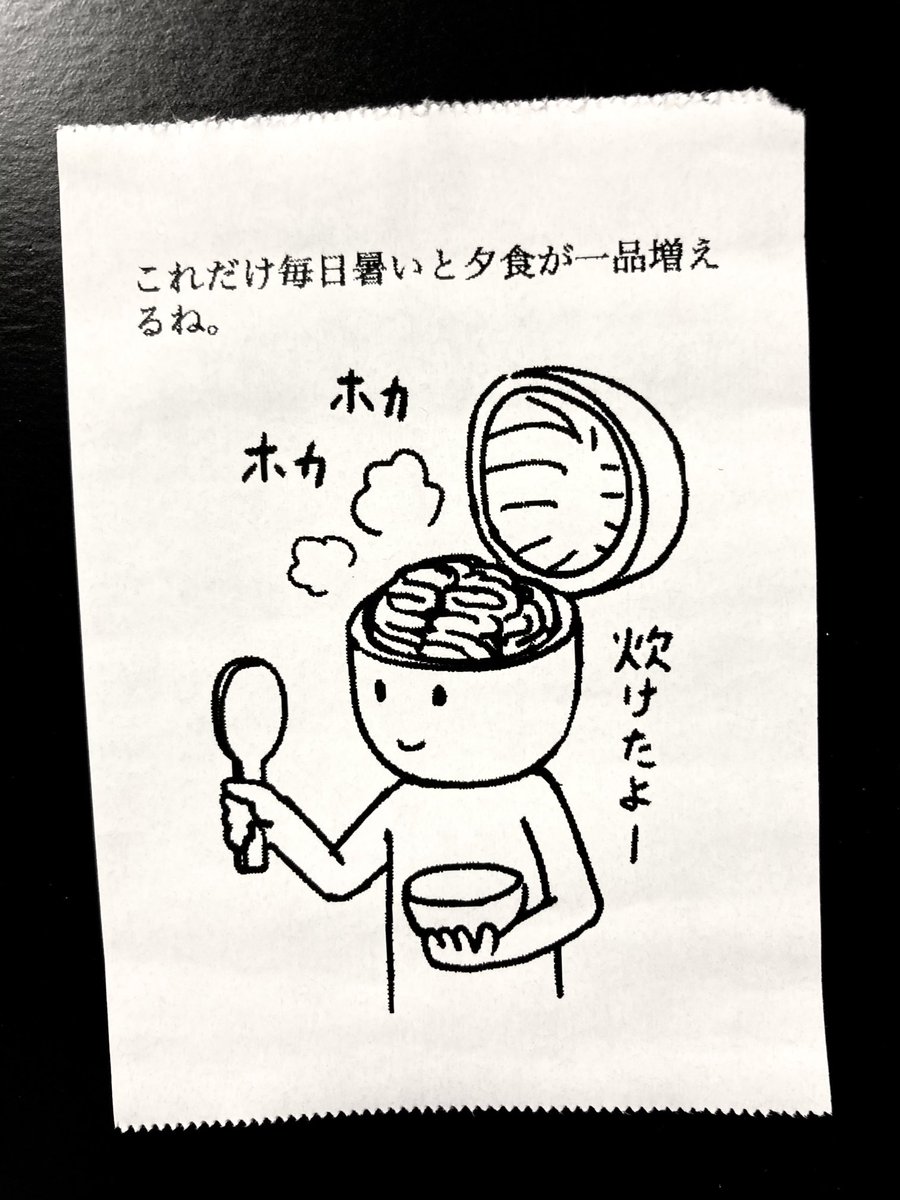 これだけ毎日暑いと夕食が一品増え
るね。
ホカ
ホカ
炊けたよー